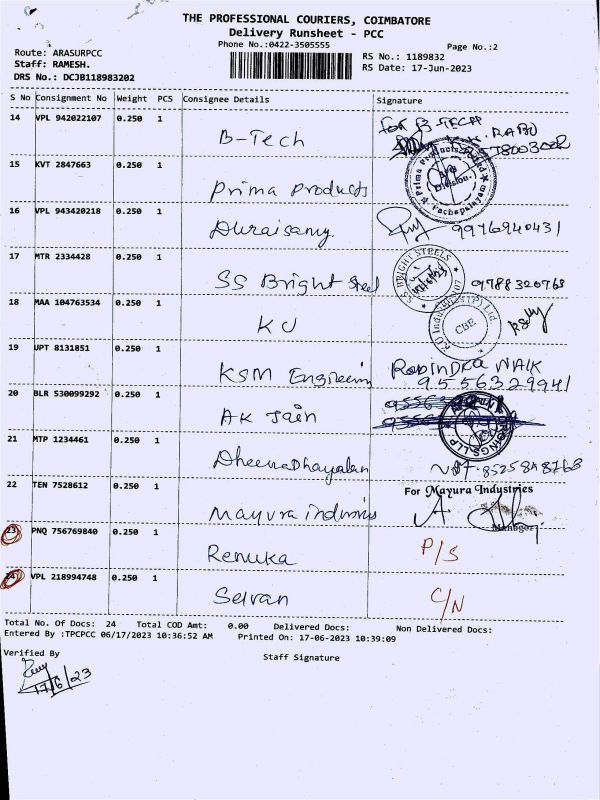 THE PROFESSIONAL COURIERS, COIMBATORE
Delivery Runsheet - PCC
Phone No.:0422-3505555
Page No.:2
Route: ARASURPCC
RS No.: 1189832
Staff: RAMESH.
RS Date: 17-Jun-2023
DRS No.: DCJB118983202
S No Consignment No Weight PCS Consignee Details Signature
14 VPL 942022107 0.250 1 B-Tech For B-TECH
15 KVT 2847663 0.250 1 Prima Products
16 VPL 943420218 0.250 1 Duraisamy 9976940431
17 MTR 2334428 0.250 1 SS Bright Steel SS BRIGHT STEELS 9788320763
18 MAA 104763534 0.250 1 KU CBE
19 UPT 8131851 0.250 1 KSM Engineerin RabinDRa NAIK
9556329941
20 BLR 530099292 0.250 1 AK Jain
21 MTP 1234461 0.250 1 Dheenadhayalan
22 TEN 7528612 0.250 1 Mayura industries For Mayura Industries
Manager
23 PNQ 756769840 0.250 1 Renuka P/S
24 VPL 218994748 0.250 1 Selvan C/N
Total No. Of Docs: 24 Total COD Amt: 0.00 Delivered Docs: Non Delivered Docs:
Entered By :TPCPCC 06/17/2023 10:36:52 AM Printed On: 17-06-2023 10:39:09
Verified By
Staff Signature
17/6/23